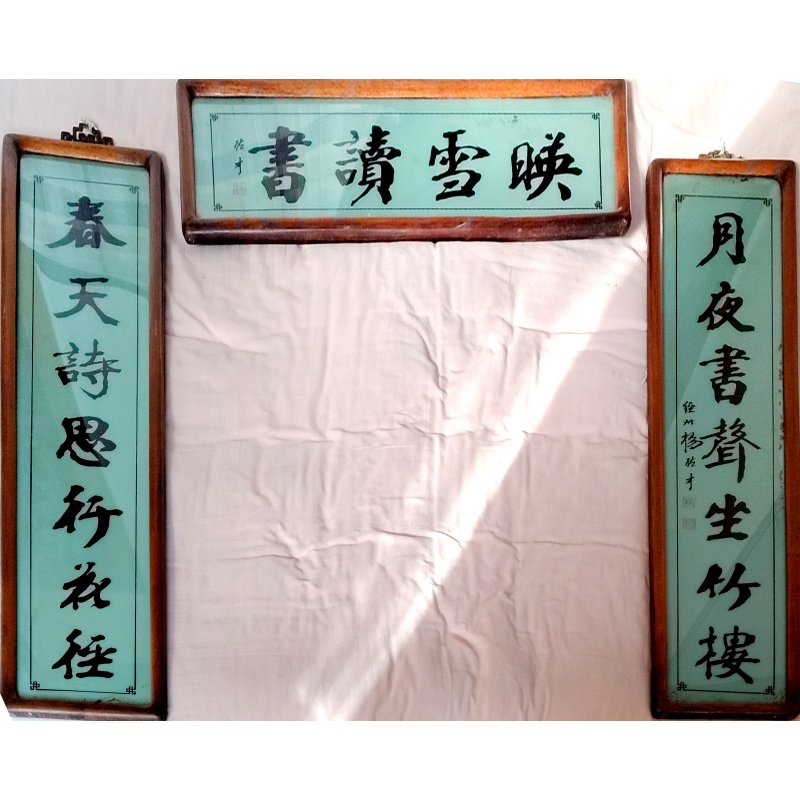 暎雪讀書
佐才
月夜書聲坐竹樓
佐才
春天詩思行花徑